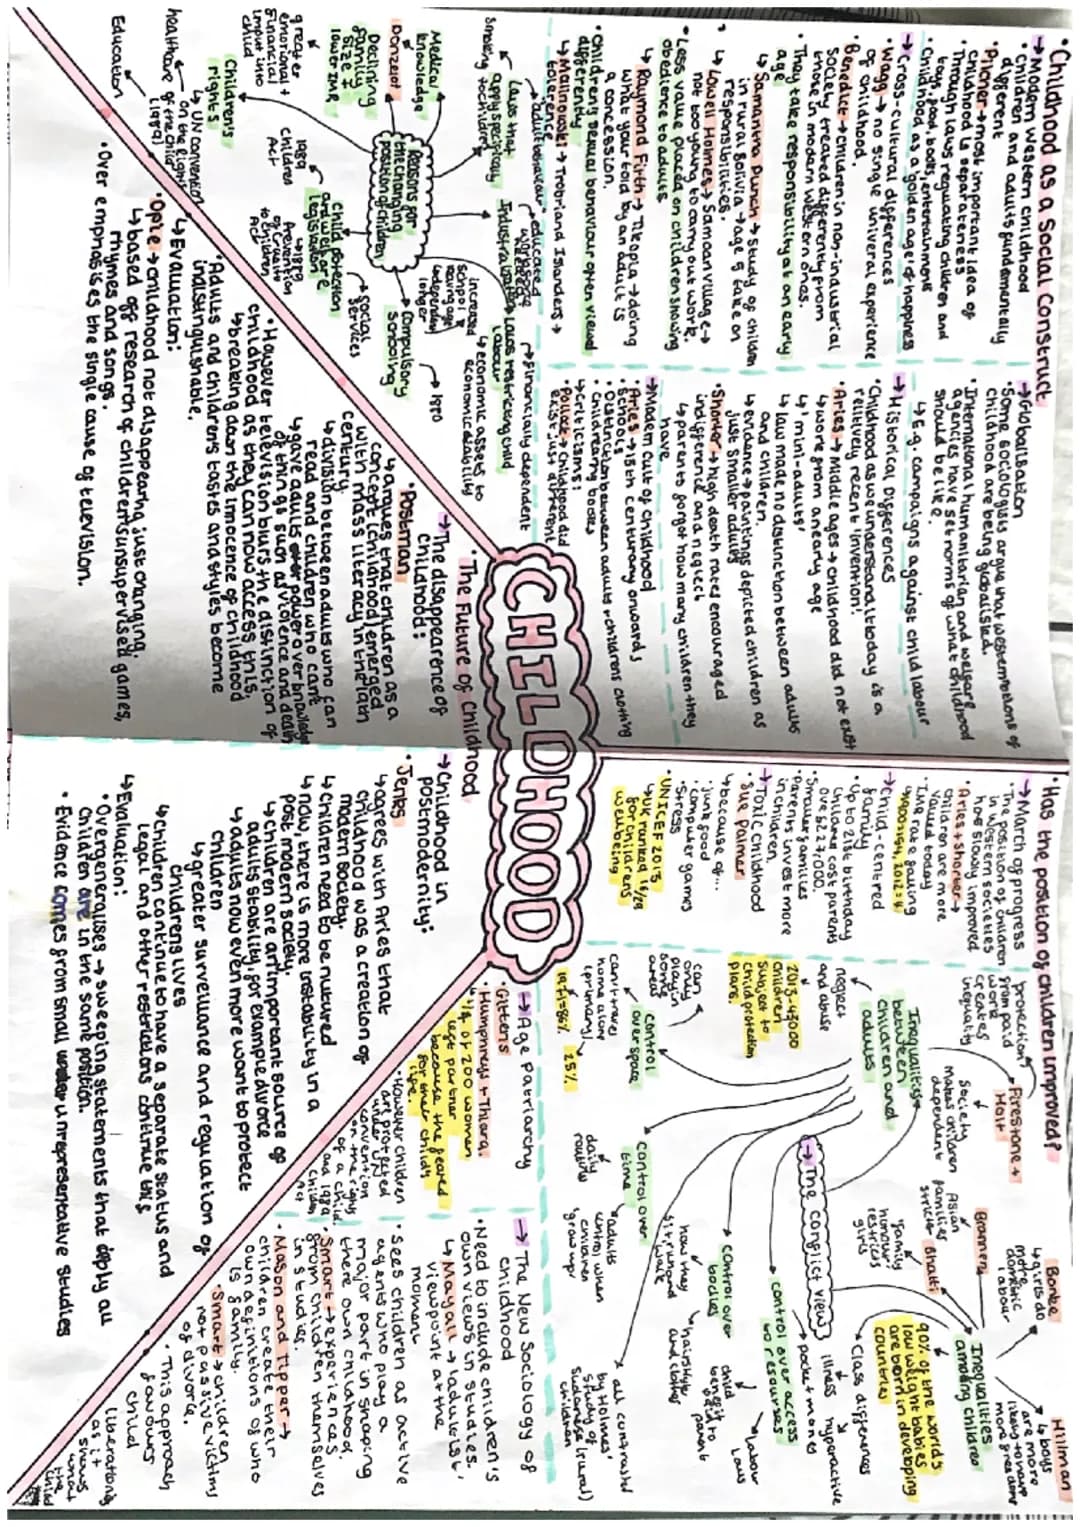 CHILDHOOD
• Childhood as a Social Construct
→ Modern western childhood
• Children and adults fundementally
different
• Pilcher → most important idea of
childhood is separateness
• Through laws regulating children and
toys, food, books, entertainment
• Childhood as a 'golden age' of happiness
→ Cross-cultural differences
• Wagg → no single univeral experience
of childhood.
• Benedict → children in non-industrial
society treated differently from
those in modern western ones.
• They take responsibility at an early
age
↳ Samantha Punch → study of children
in rural Bolivia → age 5 take on
responsibilities.
↳ Lowell Holmes → Samoan village →
not 'too young' to carry out work.
• Less value placed on children showing
obedience to adults
↳ Raymond Firth → Tikopia → doing
what your told by an adult is
a concession.
• Childrens sexual behaviour often viewed
differently
↳ Malinowski → Trobriand Islanders →
tolerence
→ Globalisation
• Some sociologists argue that western notions of
childhood are being globalised.
• International humanitarian and welfare
agencies have set norms of what childhood
should be like.
↳ E.g. campaigns against child labour
→ Historical Differences
• Childhood as we understand it today is a
relitively recent 'invention'.
• Aries → Middle ages → childhood did not exist
↳ work from an early age
↳ 'mini-adults'
↳ law made no distinction between adults
and children.
↳ evidence → paintings depicted children as
just smaller adults
• Shorter → high death rates encouraged
indifference and neglect
↳ parents forgot how many children they
have
→ Modern cult of childhood
• Aries → 13th century onwards
• schools
• Distinction between adults + childrens clothing
• Childrearing books
↳ criticisms:
• Pollock → childhood did
exist just different
Reasons for
the changing
position of children
Laws that
apply specifically
to children
smoking
Medical
knowledge
Donzelot
Declining
family
size +
lower IMR
greater
emotional +
financial
input into
child
Children's
rights
↳ UN convention
on the rights
of the child
(1989)
healthcare
Education
1989
Children
Act
Child protection
and welfare
legislation
→ 1889
Prevention
of Cruelty
to Children
Act
→ social
services
Compulsory
schooling
→ 1870
Increased
school
leaving age
dependent
longer
Industrialisation
educated
Laws restricting child
labour
↳ economic assets to
economic liability
→ financially dependent
• The Future of Childhood
→ The disappearence of
childhood:
• Postman
↳ argues that children as a
concept (childhood) emerged
with mass literacy in the 19th
century
↳ division between adults who can
read and children who cant
↳ gave adults power over knowledge
of things such as violence and death
• However television blurs the distinction of
childhood as they can now access this.
↳ breaking down the innocence of childhood
• Adults and childrens tastes and styles become
indistinguishable.
↳ Evaluation:
• Opie → childhood not disappearing just changing.
↳ based off research of childrens unsupervised games,
rhymes and songs.
• Over emphasises the single cause of television.
• Has the position of children improved?
→ March of progress
• The position of children
in western societies
has slowly improved
• Aries + Shorter →
children are more
valued today
• IMR rate falling
1900 = 154, 2012 = 4
→ Child-centred
family
• Up to 21st birthday
childrens cost parents
over £227,000.
• Smaller families
• Parents invest more
in children
→ Toxic childhood
• Sue Palmer
↳ because of...
• junk food
• computer games
• stress
• UNICEF 2013
↳ UK ranked 16/29
for childrens
wellbeing
→ The conflict view
Inequalities
between
children and
adults
protection
from paid
work
creates
inequality
Firestone +
Holt
Society
makes children
dependent
neglect
and abuse
2013 - 43000
children
subject to
child protection
plans.
control
over space
can
only
play in
some
areas
cant travel
home alone
(primary)
1971 = 86%
25%
control over
time
daily
routine
adults
control when
children
'grow up'
control over
bodies
how they
sit, run and
walk
hairstyle
and clothes
child
belongs to
parent
control over access
to resources
pocket money
labour
laws
all contrasted
by Holmes'
study of
Sudanese (rural)
children
Inequalities
among children
Hillman
↳ boys
are more
likely to have
more freedom
Bonke
↳ girls do
more
domestic
labour
Brannen
Asian
families
stricter
Bhatti
'Family
honour'
restricts
girls
90% of the worlds
low weight babies
are born in developing
countries
Class differences
illness
hyperactive
→ Age patriarchy
• Gittens
• Humphreys + Thiara.
↳ 1/4 of 200 women
left partner
because they feared
for their childs
life.
• However children
are protected
under UN
convention
on the rights
of a child
and 1989
Children
Act
→ The New Sociology of
childhood
• Need to include children's
own views in studies.
↳ Mayall → 'adultist'
viewpoint at the
moment
• Sees children as active
agents who play a
major part in shaping
there own childhood.
• Smart → experiences
from children themselves
in studies.
• Mason and Tipper →
children create their
own definitions of who
is family.
• Smart → children
not passive victims
of divorce.
• This approach
favours
child
liberationists
as it
shows
what
the
child
→ Childhood in
postmodernity:
• Jenks
↳ agrees with Aries that
childhood was a creation of
modern society.
↳ Children need to be nurtured
↳ now, there is more instability in a
post modern society.
↳ children are an important source of
adults stability, for example divorce
↳ adults now even more want to protect
children
↳ greater surveillance and regulation of
childrens lives
↳ children continue to have a separate status and
legal and other restrictions continue this
↳ Evaluation:
• Overgeneralises → sweeping statements that apply all
children are in the same position.
• Evidence comes from small unrepresentative studies